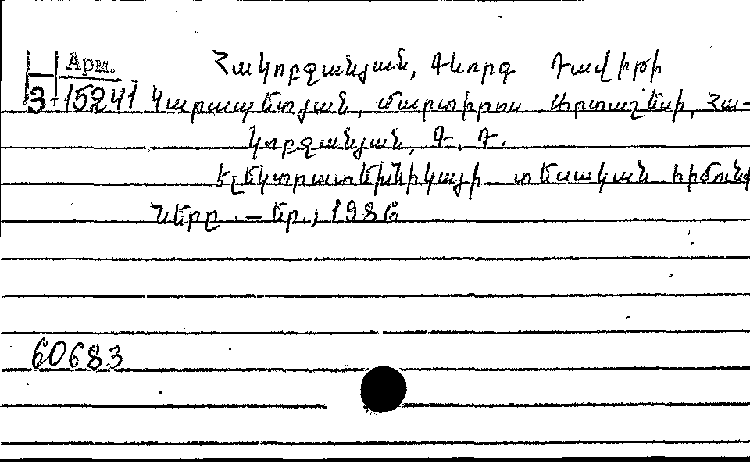 Арм. Հակոբջանյան, Գևորգ Դավիթի
3-15241 Կարապետյան, Մարտիրոս Արտաշեսի, Հա-
կոբջանյան, Գ. Դ.
Էլեկտրատեխնիկայի տեսական հիմունք
ները. – Եր., 1986
60683